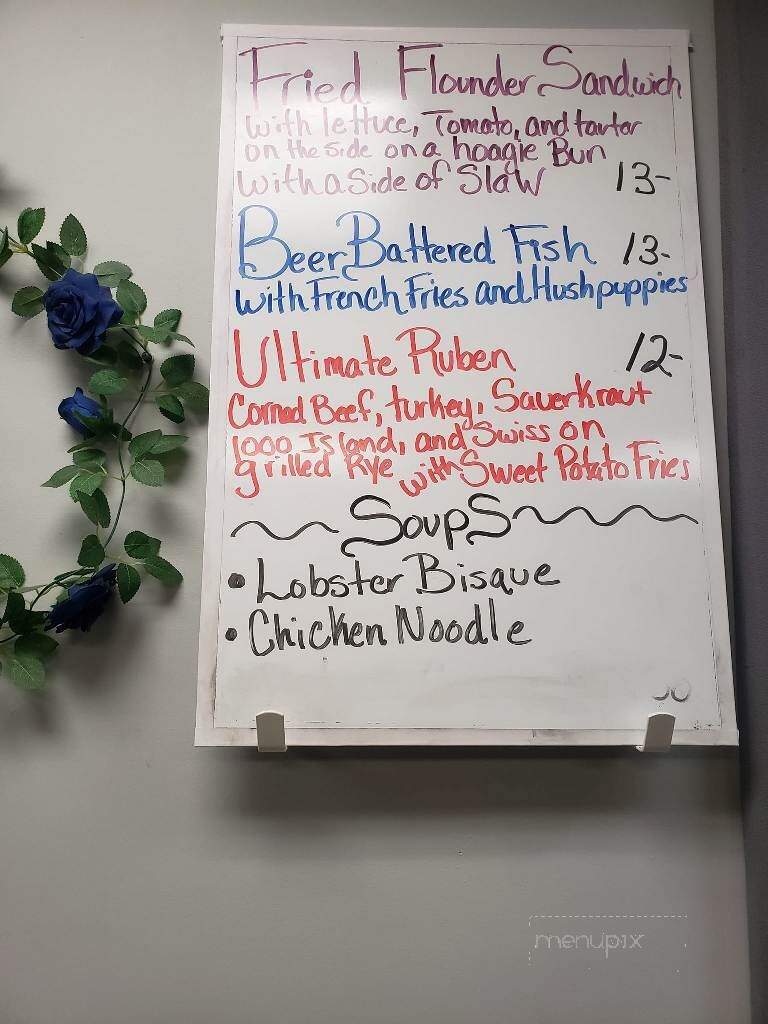 Fried Flounder Sandwich
with lettuce, Tomato, and tarter
on the side on a hoagie Bun
with a side of Slaw 13-
Beer Battered Fish 13-
with French Fries and Hushpuppies
Ultimate Ruben 12-
Corned Beef, turkey, Sauerkraut
1000 Island, and Swiss on
grilled Rye with Sweet Potato Fries
Soups
• Lobster Bisque
• Chicken Noodle
menupix